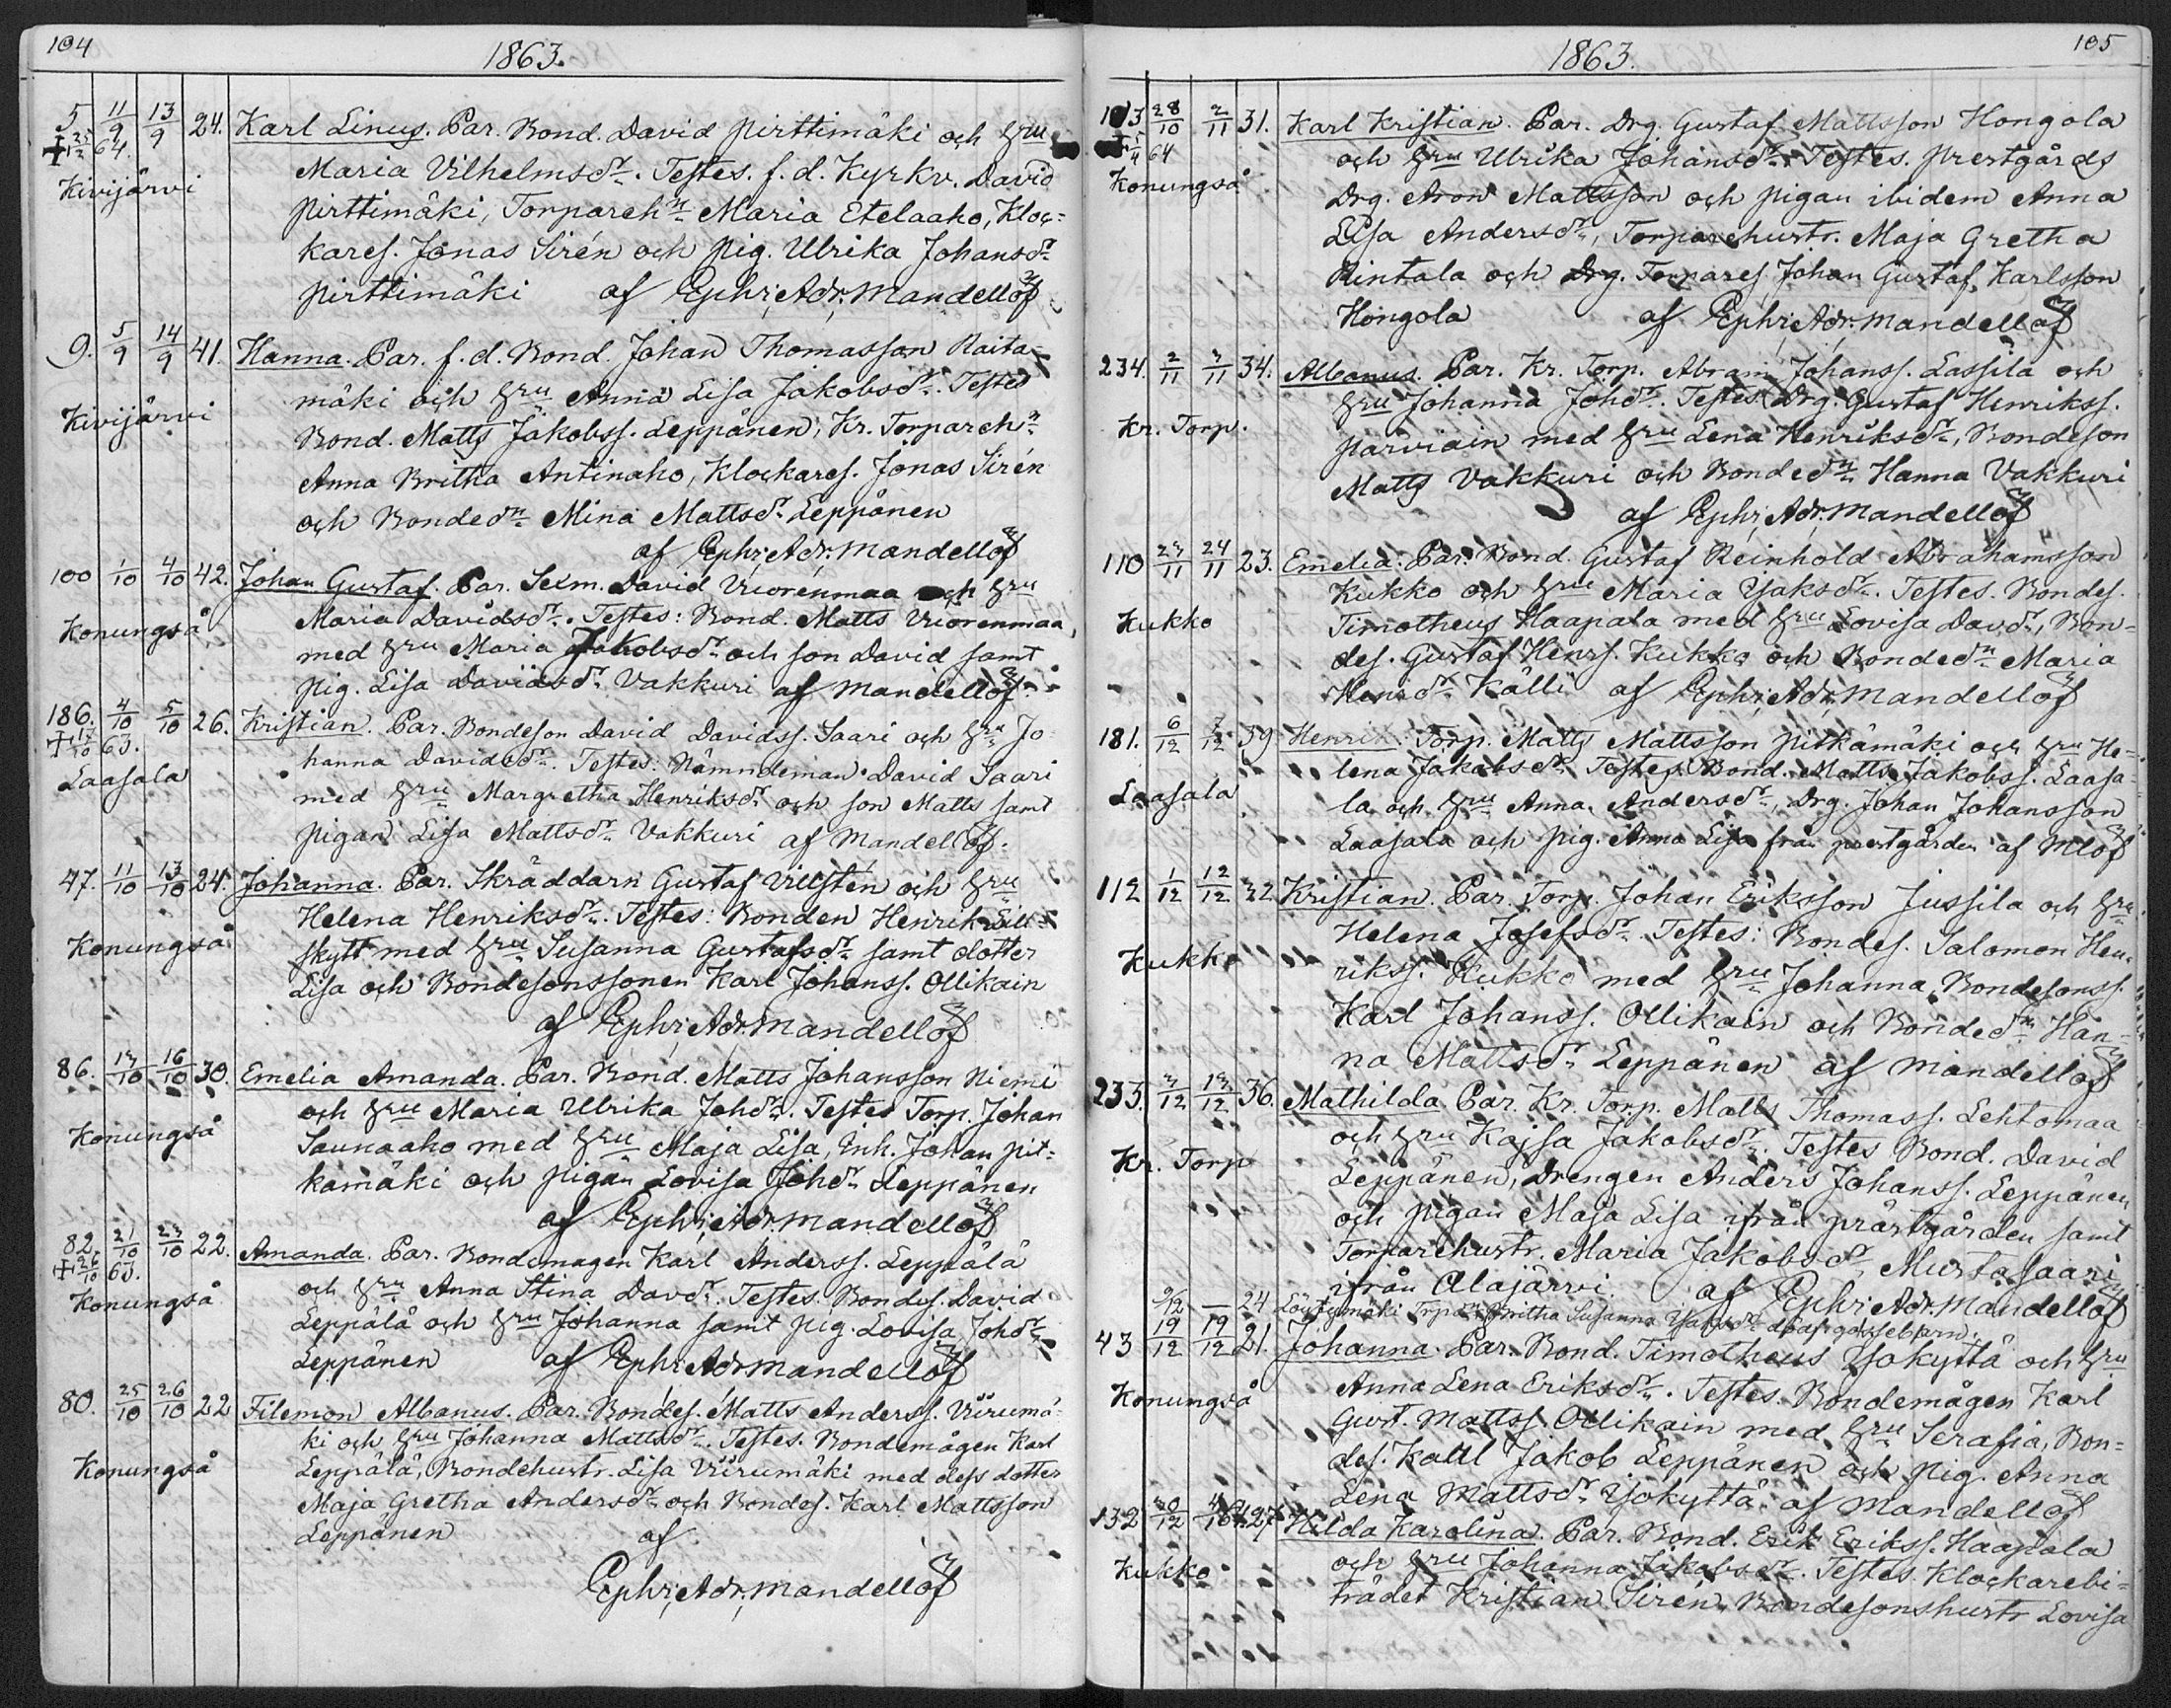 104
1863.
5 11/9 13/9 24. Karl Linus. Par. Bond. David Pirttimäki och hru
+ 25/12 64. Maria Vilhelmsdr. Testes. f. d. Kyrkv. David
Kivijärvi
Pirttimäki, Torpareh:n Maria Etelaaho, Kloc=
kares. Jonas Sirén och Pig. Ulrika Johansdr
Pirttimäki af Ephr. Adr. Mandellöf
9. 5/9 14/9 41. Hanna. Par. f. d. Bond. Johan Thomasson Raita=
mäki och hru Anna Lisa Jakobsdr. Testes
Kivijärvi
Bond. Matts Jakobss. Leppänen, Kr. Torpareh:n
Anna Britha Antinaho, Klockares. Jonas Sirén
och Bondedn Mina Mattsdr Leppänen
af Ephr. Adr. Mandellöf
100 1/10 4/10 42. Johan Gustaf. Par. Sexm. David Vuorenmaa och hru
Konungså
Maria Davidsdr. Testes: Bond. Matts Vuorenmaa,
med hru Maria Jakobsdr och son David samt
Pig. Lisa Davidsdr Vakkuri af Mandellöf.
186. 4/10 5/10 26. Kristian. Par. Bondeson David Davidss. Saari och hru Jo=
+ 17/10 63. hanna Davidsdr. Testes: Nämndeman David Saari
Laasala
med hru Margretha Henriksdr och son Matts samt
pigan Lisa Mattsdr Vakkuri af Mandellöf.
47. 11/10 13/10 24. Johanna. Par. Skräddarn Gustaf Villstén och hru
Helena Henriksdr. Testes: Bonden Henrik Lill=
Konungså
skytt med hru Susanna Gustafsdr samt dotter
Lisa och Bondesonssonen Karl Johanss. Ollikain
af Ephr. Adr. Mandellöf
86. 13/10 16/10 30. Emelia Amanda. Par. Bond. Matts Johansson Niemi
och hru Maria Ulrika Johdr. Testes Torp. Johan
Konungså
Saunaaho med hru Maja Lisa, Inh. Johan Pit=
kämäki och pigan Lovisa Johdr Leppänen
af Ephr. Adr. Mandellöf
82. 21/10 23/10 22. Amanda. Par. Bondemagen Karl Anderss. Leppälä
+ 26/10 63.
och hru Anna Stina Davdr. Testes. Bondes. David
Konungså
Leppälä och hru Johanna samt pig. Lovisa Johdr
Leppänen af Ephr. Adr. Mandellöf
80. 25/10 26/10 22 Filemon Albanus. Par. Bondes. Matts Anderss. Viirumä=
ki och hru Johanna Mattsdr. Testes. Bondemågen Karl
Konungså
Leppälä, Bondehustr. Lisa Viirumäki med dess dotter
Maja Gretha Andersdr och Bondes. Karl Mattsson
Leppänen af
Ephr. Adr. Mandellöf
105
1863.
103 28/10 2/11 31. Karl Kristian. Par. Drg. Gustaf Mattsson Hongola
+ 5/4 64
och hru Ulrika Johansdr. Testes. Prestgårds
Konungså
Drg. Aron Mattsson och pigan ibidem Anna
Lisa Andersdr, Torparehustr. Maja Gretha
Rintala och Drg. Torpares Johan Gustaf Karlsson
Hongola af Ephr. Adr. Mandellöf
234. 2/11 3/11 34. Albanus. Par. Kr. Torp. Abram Johanss. Lassila och
hru Johanna Johdr. Testes Drg. Gustaf Henrikss.
Kr. Torp.
Parviain med hru Lena Henriksdr, Bondeson
Matts Vakkuri och Bondedn Hanna Vakkuri
af Ephr. Adr. Mandellöf
110 23/11 24/11 23. Emelia. Par. Bond. Gustaf Reinhold Abrahamsson
Kukko och hru Maria Isaksdr. Testes. Bondes.
Kukko
Timotheus Haapala med hru Lovisa Davdr, Bon=
des. Gustaf Henrs. Kukko och Bondedn Maria
Henrdr Källi af Ephr. Adr. Mandellöf
181. 6/12 7/12 39 Henrik. Torp. Matts Mattsson Pitkämäki och hru He=
lena Jakobsdr Testes. Bond. Matts Jakobss. Laasa=
Laasala
la och hru Anna Andersdr, Drg. Johan Johansson
Laasala och Pig. Anna Lisa från prestgården af Mlöf
112 1/12 12/12 22 Kristian. Par. Torp. Johan Eriksson Jussila och hru
Helena Josefsdr. Testes: Bondes. Salomon Hen=
Kukko
rikss. Kukko med hru Johanna, Bondesonss.
Karl Johanss. Ollikain och Bondedn Han=
na Mattsdr Leppänen af Mandellöf
233. 3/12 13/12 36. Mathilda. Par. Kr. Torp. Matts Thomass. Lehtomaa
och hru Kajsa Jakobsdr. Testes Bond. David
Kr. Torp
Leppänen, Drengen Anders Johanss. Leppänen
och pigan Maja Lisa ifrån prästgården samt
Torparehustr. Maria Jakobsdr Mustasaari
ifrån Alajärvi. af Ephr. Adr. Mandellöf
9/12 — 24 Britha Susanna
43 19/12 19/12 21. Johanna. Par. Bond. Timotheus Isokyttä och hru
Anna Lena Eriksdr. Testes. Bondemågen Karl
Konungså
Gust. Mattss. Ollikain med hru Serafia, Bon=
des. Kalll Jakob Leppänen och Pig. Anna
Lena Mattsdr Isokyttä af Mandellöf
132 Hilda Karolina. Par. Bond. Erik Erikss. Haapala
och hru Johanna Jakobsdr. Testes Klockarebi=
Kukko
trädet Kristian Sirén, Bondesonshustr Lovisa